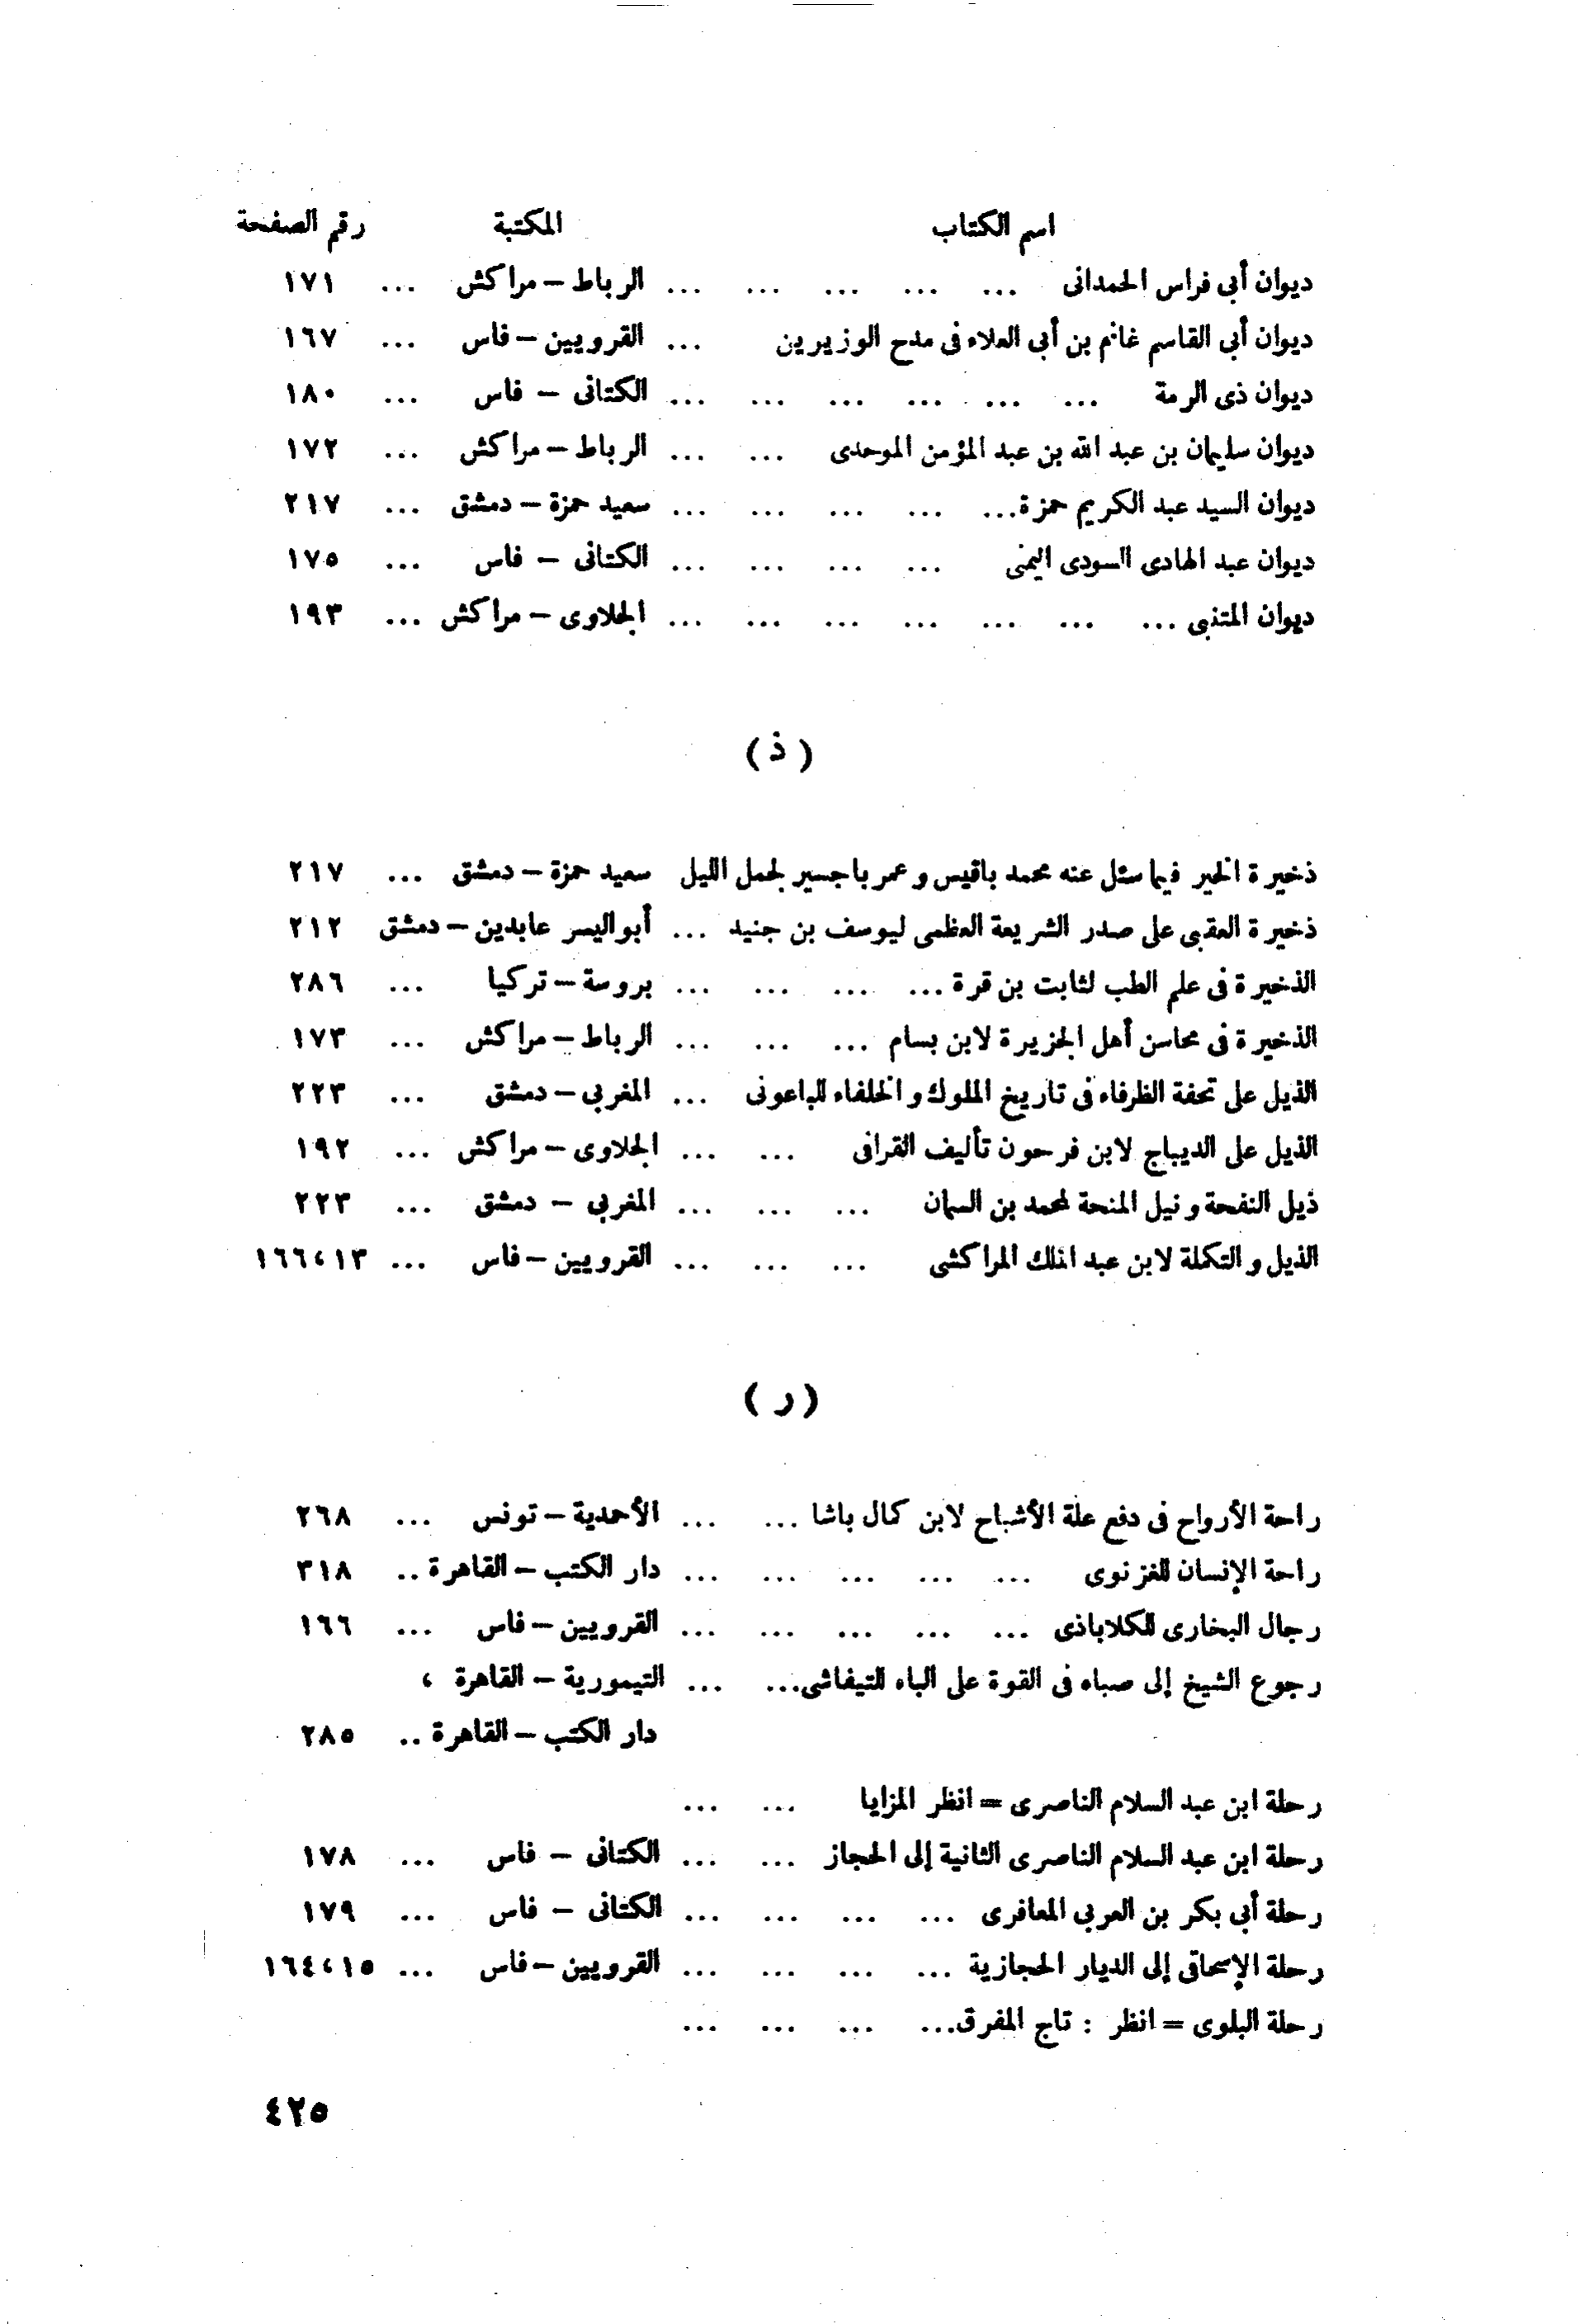 اسم الكتاب المكتبة رقم الصفحة
ديوان أبى فراس الحمدانى ... ... ... ... ... الرباط – مراكش ... ١٧١
ديوان أبى القاسم غانم بن أبى العلاء فى مدح الوزيرين ... القرويين – فاس ... ١٦٧
ديوان ذى الرمة ... ... ... ... ... ... الكتانى – فاس ... ١٨٠
ديوان سليمان بن عبد الله بن عبد المؤمن الموحدى ... ... الرباط – مراكش ... ١٧٢
ديوان السيد عبد الكريم حمزة... ... ... ... ... سعيد حمزة – دمشق ... ٢١٧
ديوان عبد الهادى السودى اليمنى ... ... ... ... الكتانى – فاس ... ١٧٥
ديوان المتنبى ... ... ... ... ... ... ... الجلاوى – مراكش ... ١٩٣
( ذ )
ذخيرة الخير فيما سئل عنه محمد باقيس وعمر باجسير لحمل الليل سعيد حمزة – دمشق ... ٢١٧
ذخيرة العقبى على صدر الشريعة العظمى ليوسف بن جنيد ... أبو اليسر عابدين – دمشق ٢١٢
الذخيرة فى علم الطب لثابت بن قرة ... ... ... ... بروسة – تركيا ... ٢٨٦
الذخيرة فى محاسن أهل الجزيرة لابن بسام ... ... ... الرباط – مراكش ... ١٧٣
الذيل على تحفة الظرفاء فى تاريخ الملوك والخلفاء للباعونى ... المغربى – دمشق ... ٢٢٣
الذيل على الديباج لابن فرحون تأليف القرافى ... ... الجلاوى – مراكش ... ١٩٢
ذيل النفحة ونيل المنحة لمحمد بن السمان ... ... ... المغربى – دمشق ... ٢٢٣
الذيل والتكملة لابن عبد الملك المراكشى ... ... ... القرويين – فاس ... ١٣ ، ١٦٦
( ر )
راحة الأرواح فى دفع علة الأشباح لابن كمال باشا ... ... ... الأحمدية – تونس ... ٢٦٨
راحة الإنسان للغزنوى ... ... ... ... ... دار الكتب – القاهرة .. ٣١٨
رجال البخارى للكلاباذى ... ... ... ... ... القرويين – فاس ... ١٦٦
رجوع الشيخ إلى صباه فى القوة على الباه للتيفاشى... ... التيمورية – القاهرة ،
دار الكتب – القاهرة .. ٢٨٥
رحلة ابن عبد السلام الناصرى = انظر المزايا ... ...
رحلة ابن عبد السلام الناصرى الثانية إلى الحجاز ... ... الكتانى – فاس ... ١٧٨
رحلة أبى بكر بن العربى المعافرى ... ... ... ... الكتانى – فاس ... ١٧٩
رحلة الإسحاقى إلى الديار الحجازية ... ... ... ... القرويين – فاس ... ١٥ ، ١٦٤
رحلة البلوى = انظر : تاج المفرق... ... ... ...
٤٢٥